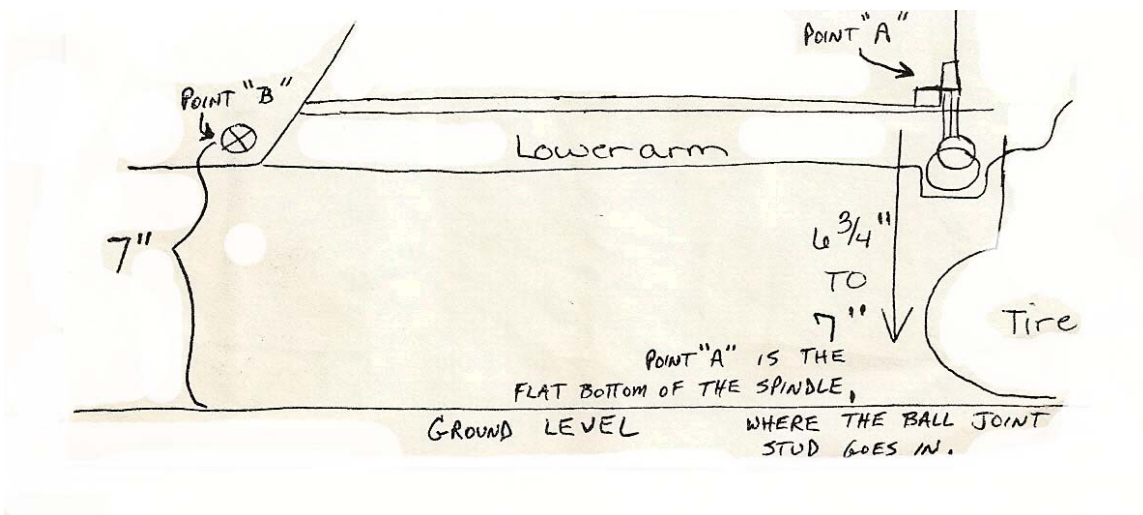 POINT "A"
POINT "B"
Lower arm
7"
6 3/4"
TO
7"
Tire
POINT "A" IS THE
FLAT BOTTOM OF THE SPINDLE,
WHERE THE BALL JOINT
STUD GOES IN.
GROUND LEVEL